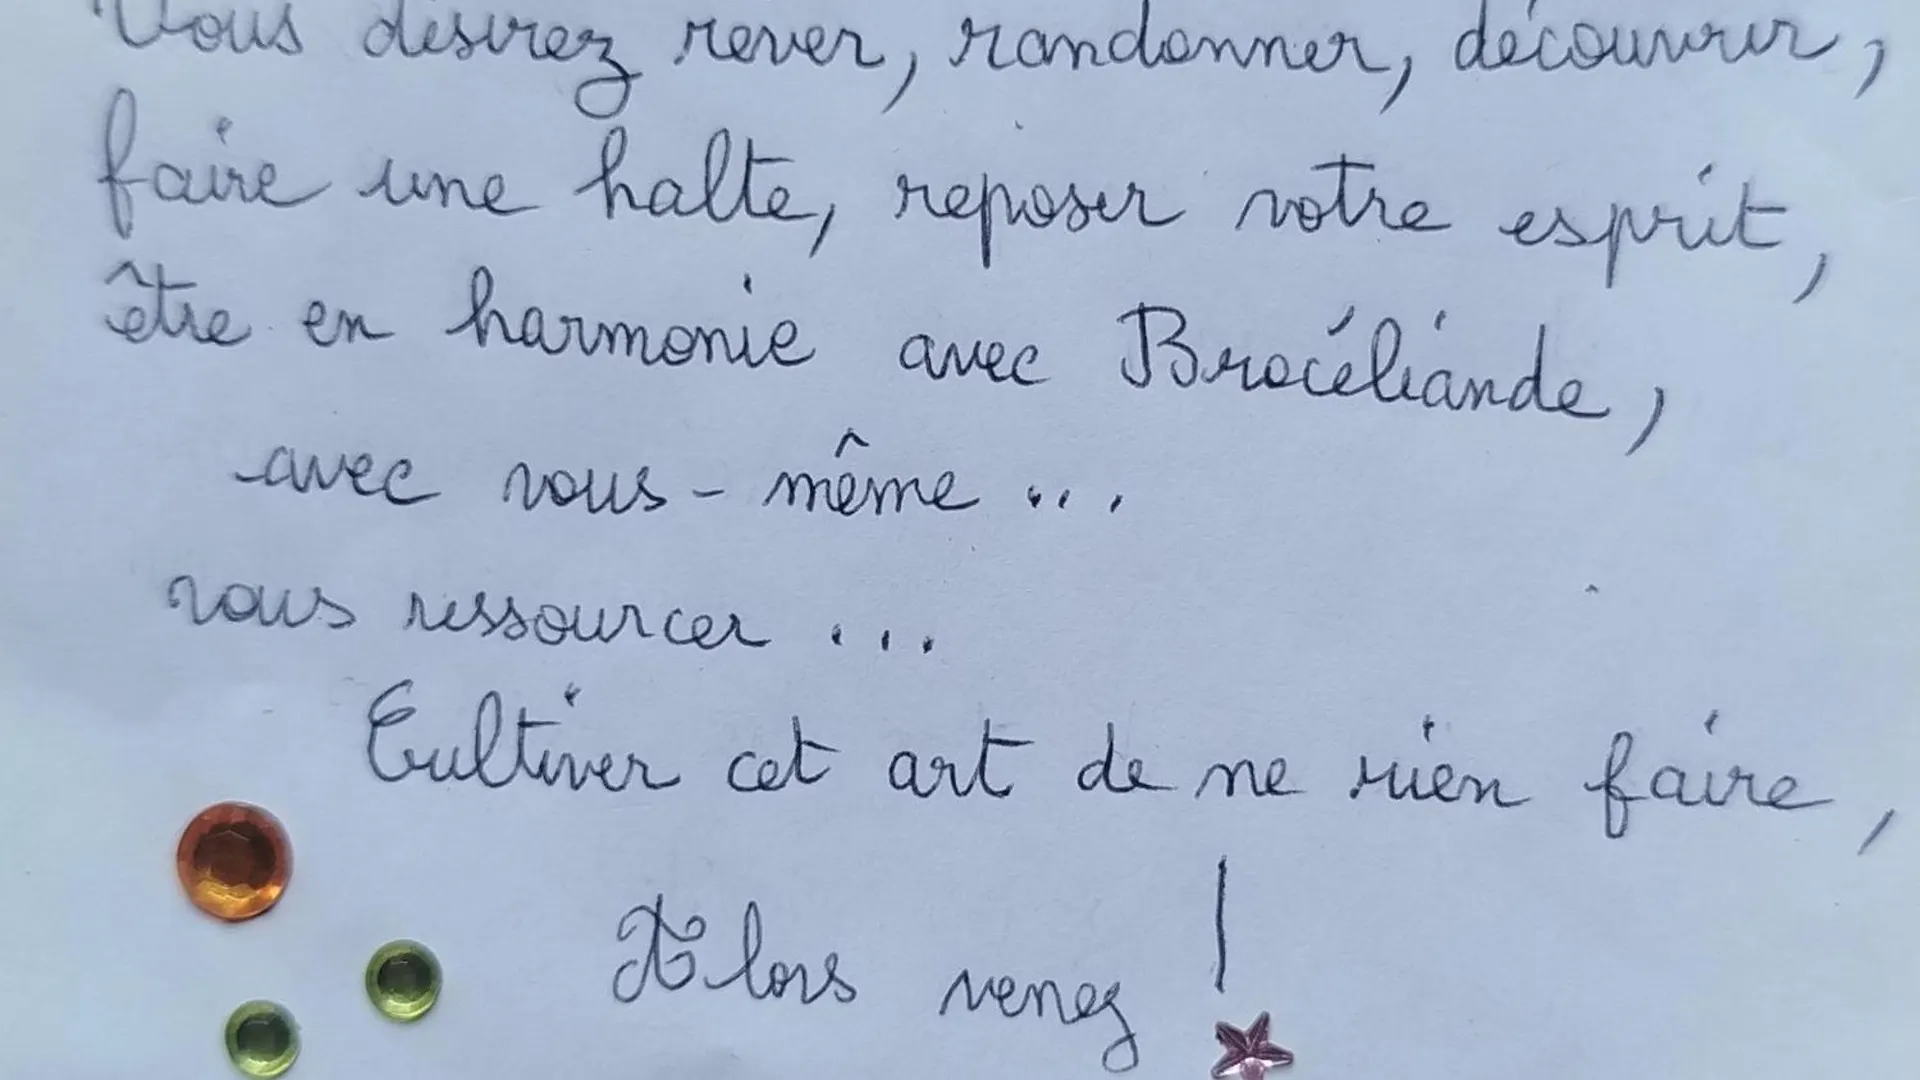 Vous désirez rêver, randonner, découvrir,
faire une halte, reposer votre esprit,
être en harmonie avec Brocéliande,
avec vous-même ...
vous ressourcer ...
Cultiver cet art de ne rien faire,
Alors venez !